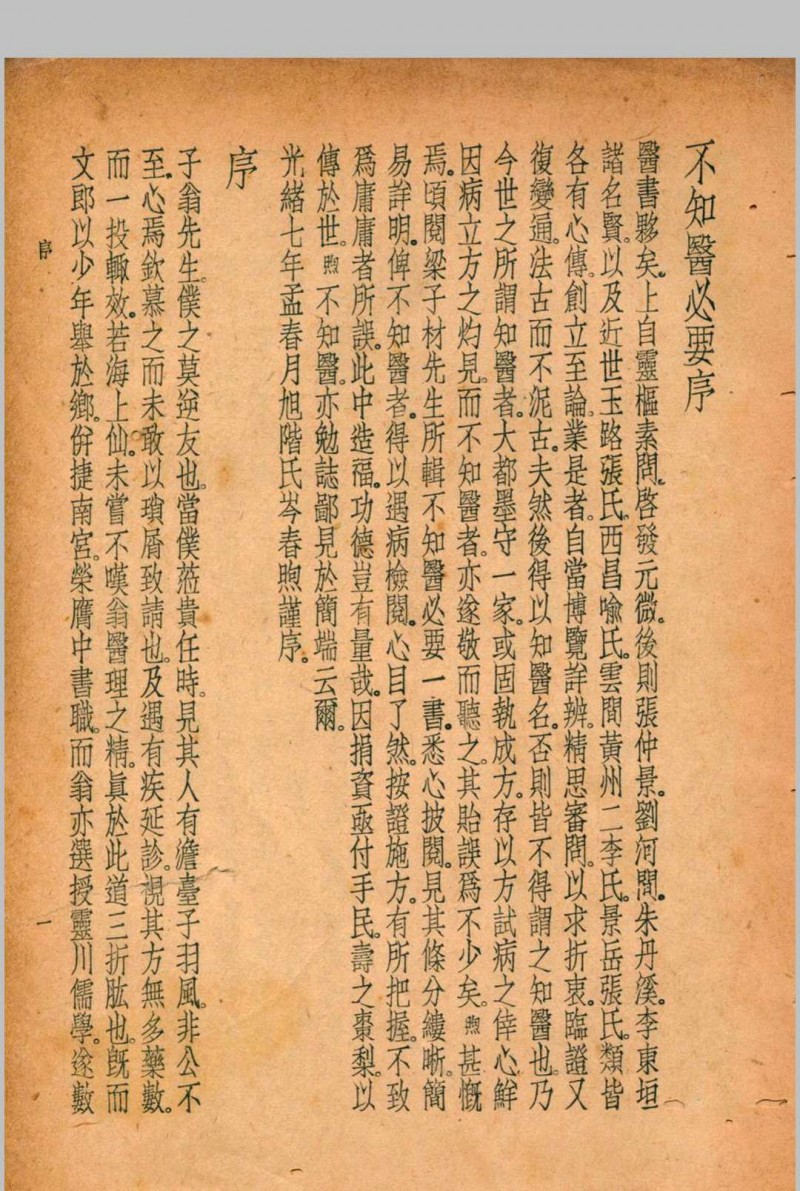 不知醫必要序
醫書夥矣。上自靈樞素問。啓發元微。後則張仲景。劉河間。朱丹溪。李東垣
諸名賢。以及近世玉路張氏。西昌喻氏。雲間黃州二李氏。景岳張氏。類皆
各有心傳。創立至論。業是者。自當博覽詳辨。精思審問。以求折衷。臨證又
復變通。法古而不泥古。夫然後得以知醫名。否則皆不得謂之知醫也。乃
今世之所謂知醫者。大都墨守一家。或固執成方。存以方試病之倖心。鮮
因病立方之灼見。而不知醫者。亦遂敬而聽之。其貽誤爲不少矣。煦甚慨
焉。頃閱梁子材先生所輯不知醫必要一書。悉心披閱。見其條分縷晰。簡
易詳明。俾不知醫者。得以遇病檢閱。心目了然。按證施方。有所把握。不致
爲庸庸者所誤。此中造福。功德豈有量哉。因捐資亟付手民。壽之棗梨。以
傳於世。煦不知醫。亦勉誌鄙見於簡端云爾。
光緒七年孟春月旭階氏岑春煦謹序。
序
子翁先生。僕之莫逆友也。當僕蒞貴任時。見其人有澹臺子羽風。非公不
至。心焉欽慕之而未敢以瑣屑致請也。及遇有疾延診。視其方無多藥數。
而一投輒效。若海上仙。未嘗不嘆翁醫理之精。眞於此道三折肱也。旣而
文郎以少年舉於鄉。倂捷南宮。榮膺中書職。而翁亦選授靈川儒學。遂數
序
一